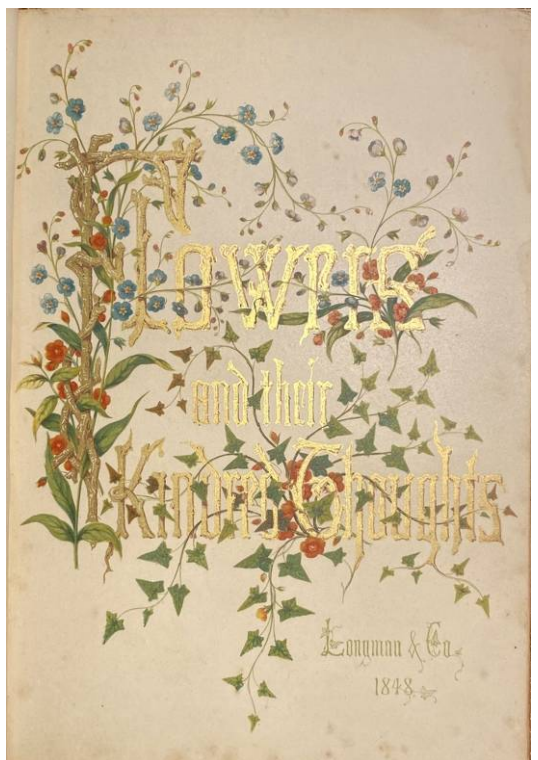 Flowers
and their
Kindred Thoughts
Longman & Co.
1848